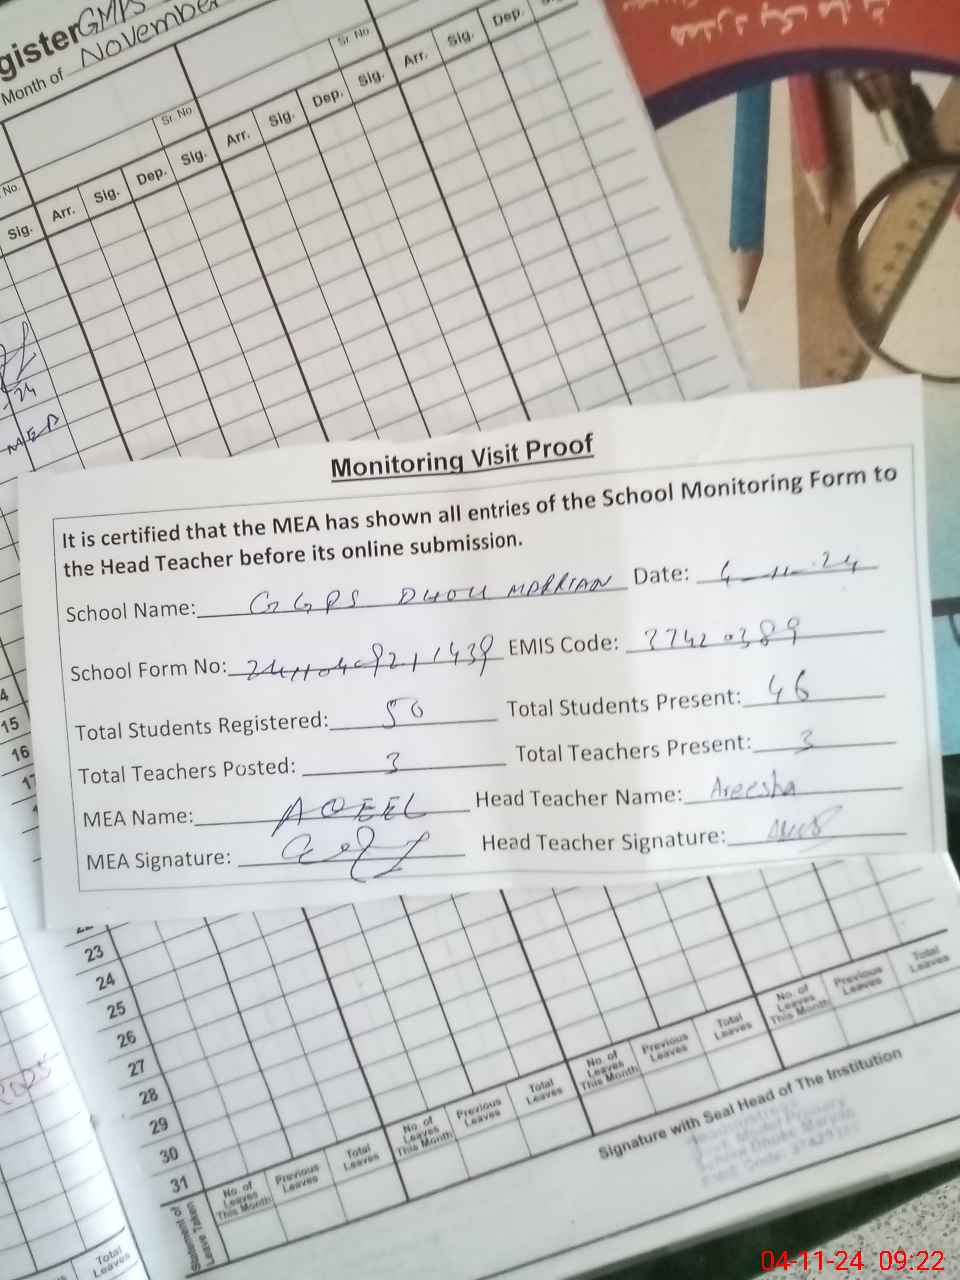 gister GMPS
Month of November
Sr. No.
No. Sr. No.
Sig. Arr. Sig. Dep. Sig. Arr. Sig. Dep. Sig. Arr. Sig. Dep.
24
MEA
Monitoring Visit Proof
It is certified that the MEA has shown all entries of the School Monitoring Form to
the Head Teacher before its online submission.
School Name: GGPS DHOU MARRIAN Date: 4-11-24
School Form No: EMIS Code: 37420389
Total Students Registered: 50 Total Students Present: 46
Total Teachers Posted: 3 Total Teachers Present: 3
MEA Name: AQEEL Head Teacher Name: Areesha
MEA Signature: Head Teacher Signature:
4
15
16
17
23
24
25
26
27
28
29
30
31
Statement of Leave Taken
No. of Leaves This Month Previous Leaves Total Leaves No. of Leaves This Month Previous Leaves Total Leaves No. of Leaves This Month Previous Leaves Total Leaves No. of Leaves This Month Previous Leaves Total Leaves
Signature with Seal Head of The Institution
Total Leaves
04-11-24 09:22